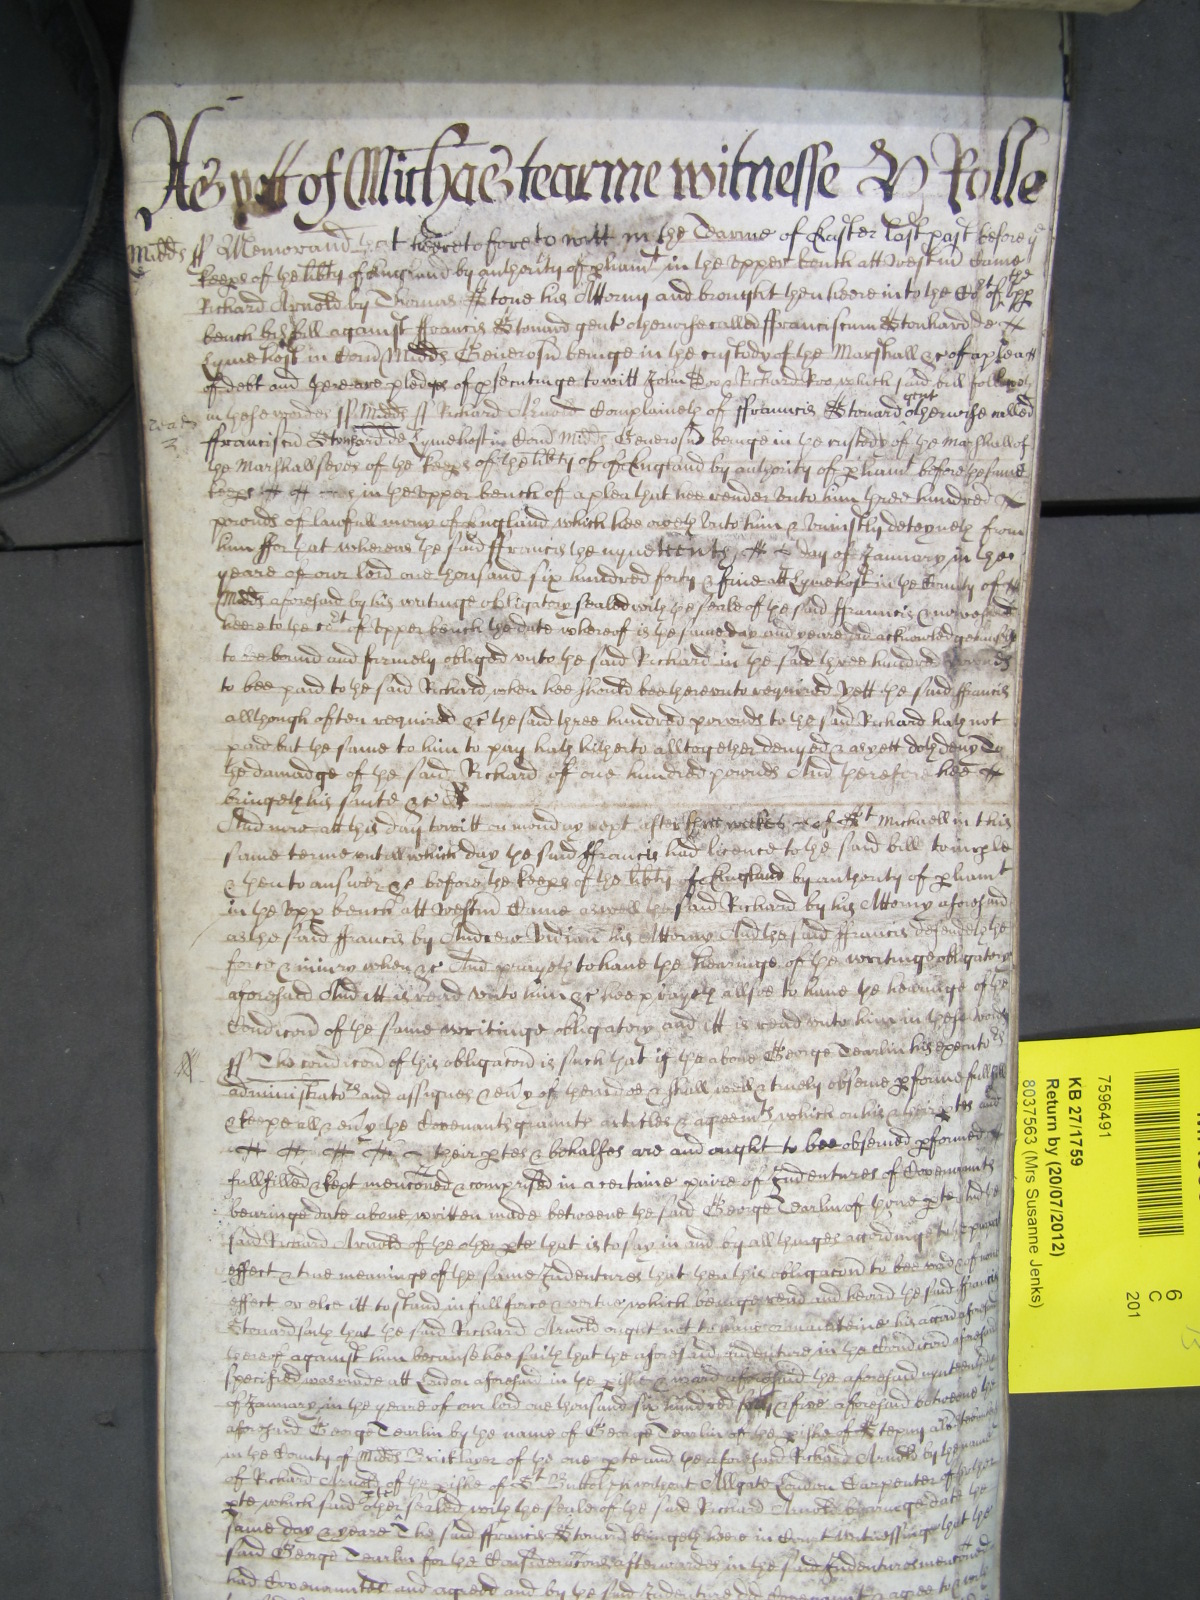 As yett of Michaes tearme witnesse H Rolle
Midds ss Memorand that heretofore to witt in the Tearme of Easter last past before ye
keeps of the libty of England by authority of pliamt in the upper bench att Westm Came
Richard Arnold by Thomas Stone his Attorny and brought then heere into the Cot of the upp
bench his bill against ffrancis Stonard gent otherwise called ffranciscum Stonhard de
Lymehost in Com Midds Generosu beinge in the custody of the Marshall &c of a plea
of debt and there are pledgs of psecutinge to witt John Doo & Richard Roo which said bill followeth
in these wordes ss Midds ss Richard Arnold Complaineth of ffrancis Stonard gent otherwise called
ffranciscu Stonhard de Lymehost in Com Midds Generosu beinge in the custody of the Marshall of
the Marshallseyes of the keeps of the libty of England by authority of pliamt before the same
keeps in the upper bench of a plea that hee render unto him three hundred
pounds of lawfull mony of England which hee oweth unto him & uniustly deteyneth from
him ffor that whereas the said ffrancis the nyneteenth day of January in the
yeare of our lord one thousand six hundred forty & five att Lymehost in the County of
Midds aforesaid by his writinge obligatory sealed with the seale of the said ffrancis & now
heere to the cot of upper bench the date whereof is the same day and yeare did acknowledge himself
to bee bound and firmely obliged unto the said Richard in the said three hundred pounds
to bee paid to the said Richard when hee should bee thereunto required Yett the said ffrancis
allthough often required &c the said three hundred pounds to the said Richard hath not
paid but the same to him to pay hath hitherto alltogether denyed & as yett doth deny To
the damadge of the said Richard of one hundred pounds And therefore hee
bringeth his suite &c
And now att this day to witt on monday next after three weekes of St Michaell in this
same terme untill which day the said ffrancis had licence to the said bill to imple
& then to answer &c before the keeps of the libty of England by authority of pliamt
in the upp bench att Westm Came aswell the said Richard by his Attorny aforesaid
as the said ffrancis by Andrew Vidian his Attorny And the said ffrancis defendeth the
force & iniury when &c And prayeth to have the hearinge of the writinge obligatory
aforesaid And itt is read unto him &c hee prayeth allsoe to have the hearinge of the
Condicon of the same writinge obligatory and itt is read unto him in these words
ss The condicon of this obligacon is such that if the above George Tearlin his executors
administrators and assignes & evry of them doe & shall well & truely observe pforme fullfill
& keepe all & evry the Covenants graunts articles & agreemts which on his & their ptes and
their ptes & behalfes are and ought to bee observed pformed
fullfilled & kept menconed & comprised in a certaine paire of Indentures of Covenants
bearinge date above written made betweene the said George Tearlin of thone pte and the
said Richard Arnold of the other pte that is to say in and by all thinges accordinge to the purport
effect & true meaninge of the same Indentures that then this obligacon to bee void & of none
effect or else itt to stand in full force & vertue which beinge read and heard the said ffrancis
Stonard saith that the said Richard Arnold ought not to have or mainteine his accon aforesaid
thereof against him because hee saith that the aforesaid Indenture in the Condicon aforesaid
specified was made att London aforesaid in the pishe & ward aforesaid the aforesaid nynteenth day
of January in the yeare of our lord one thousand six hundred forty & five aforesaid betweene the
aforesaid George Tearlin by the name of George Tearlin of the pishe of Stepny als Stebunheath
in the County of Midds Bricklayer of the one pte and the aforesaid Richard Arnold by the name
of Richard Arnold of the pishe of St Buttolph without Allgate London Carpenter of the other
pte which said other pte sealed with the seale of the said Richard Arnold bearinge date the
same day & yeare The said ffrancis Stonard bringeth heere in Court Witnessinge that the
said George Tearlin for the Consideracons afterwards in the said Indentures menconed
had Covenanted and agreed and by the said Indenture did Covenant & agree to & with
7596491
KB 27/1759
Return by (20/07/2012)
8037563 (Mrs Susanne Jenks)
6
C
201